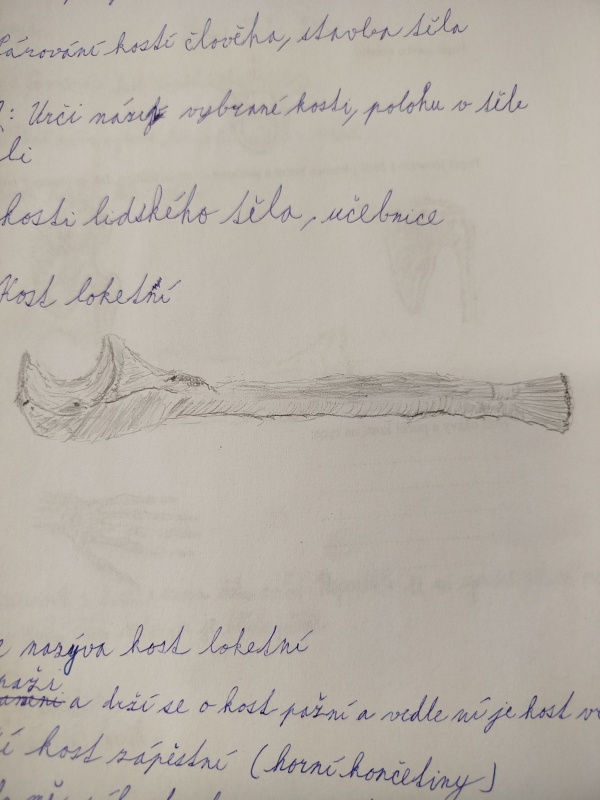 Párování kostí člověka, stavba těla
: Urči název vybrané kosti, polohu v těle
li
kosti lidského těla, učebnice
Kost loketní
nazýva kost loketní
paži
a drží se o kost pažní a vedle ní je kost
kost zápěstní (horní končetiny)